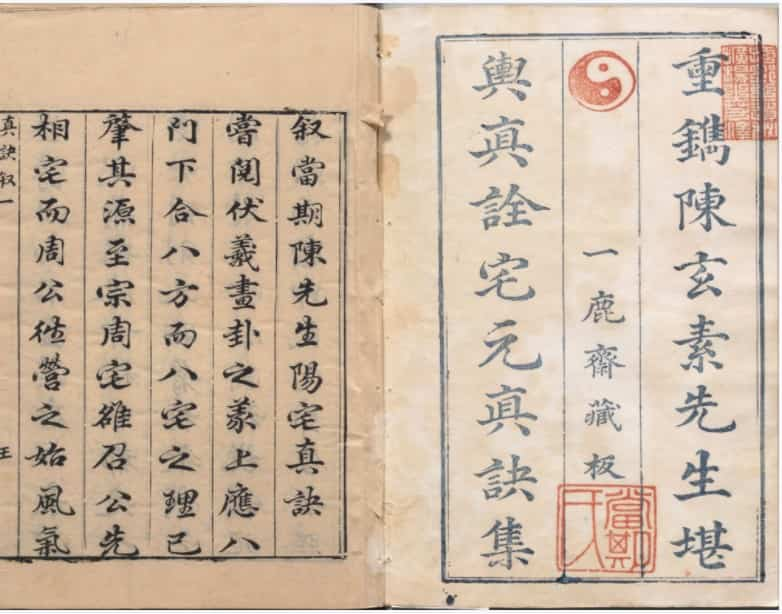 重鐫陳玄素先生堪
一鹿齋藏板
輿真詮宅元真訣集
當期氏
叙當期陳先生陽宅真訣
嘗閱伏羲畫卦之義上應八
門下合八方而八宅之理已
肇其源至宗周宅雒召公先
相宅而周公徃營之始風氣
真訣叙一